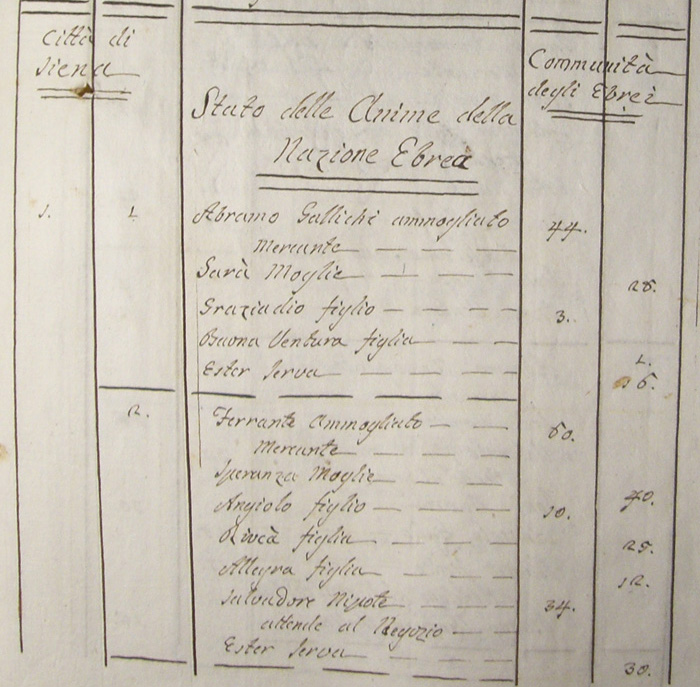 Città di
Siena
Communità
degli Ebrei
Stato delle Anime della
Nazione Ebrea
1. 1. Abramo Gallichi ammogliato 44.
Mercante
Sara Moglie 28.
Graziadio figlio 3.
Buona Ventura figlia 1.
Ester Serva 36.
2. Ferrante Ammogliato 60.
Mercante
Speranza Moglie 40.
Angiolo figlio 10.
Rivca figlia 25.
Allegra figlia 12.
Salvadore Nipote 34.
attende al Negozio
Ester Serva 30.